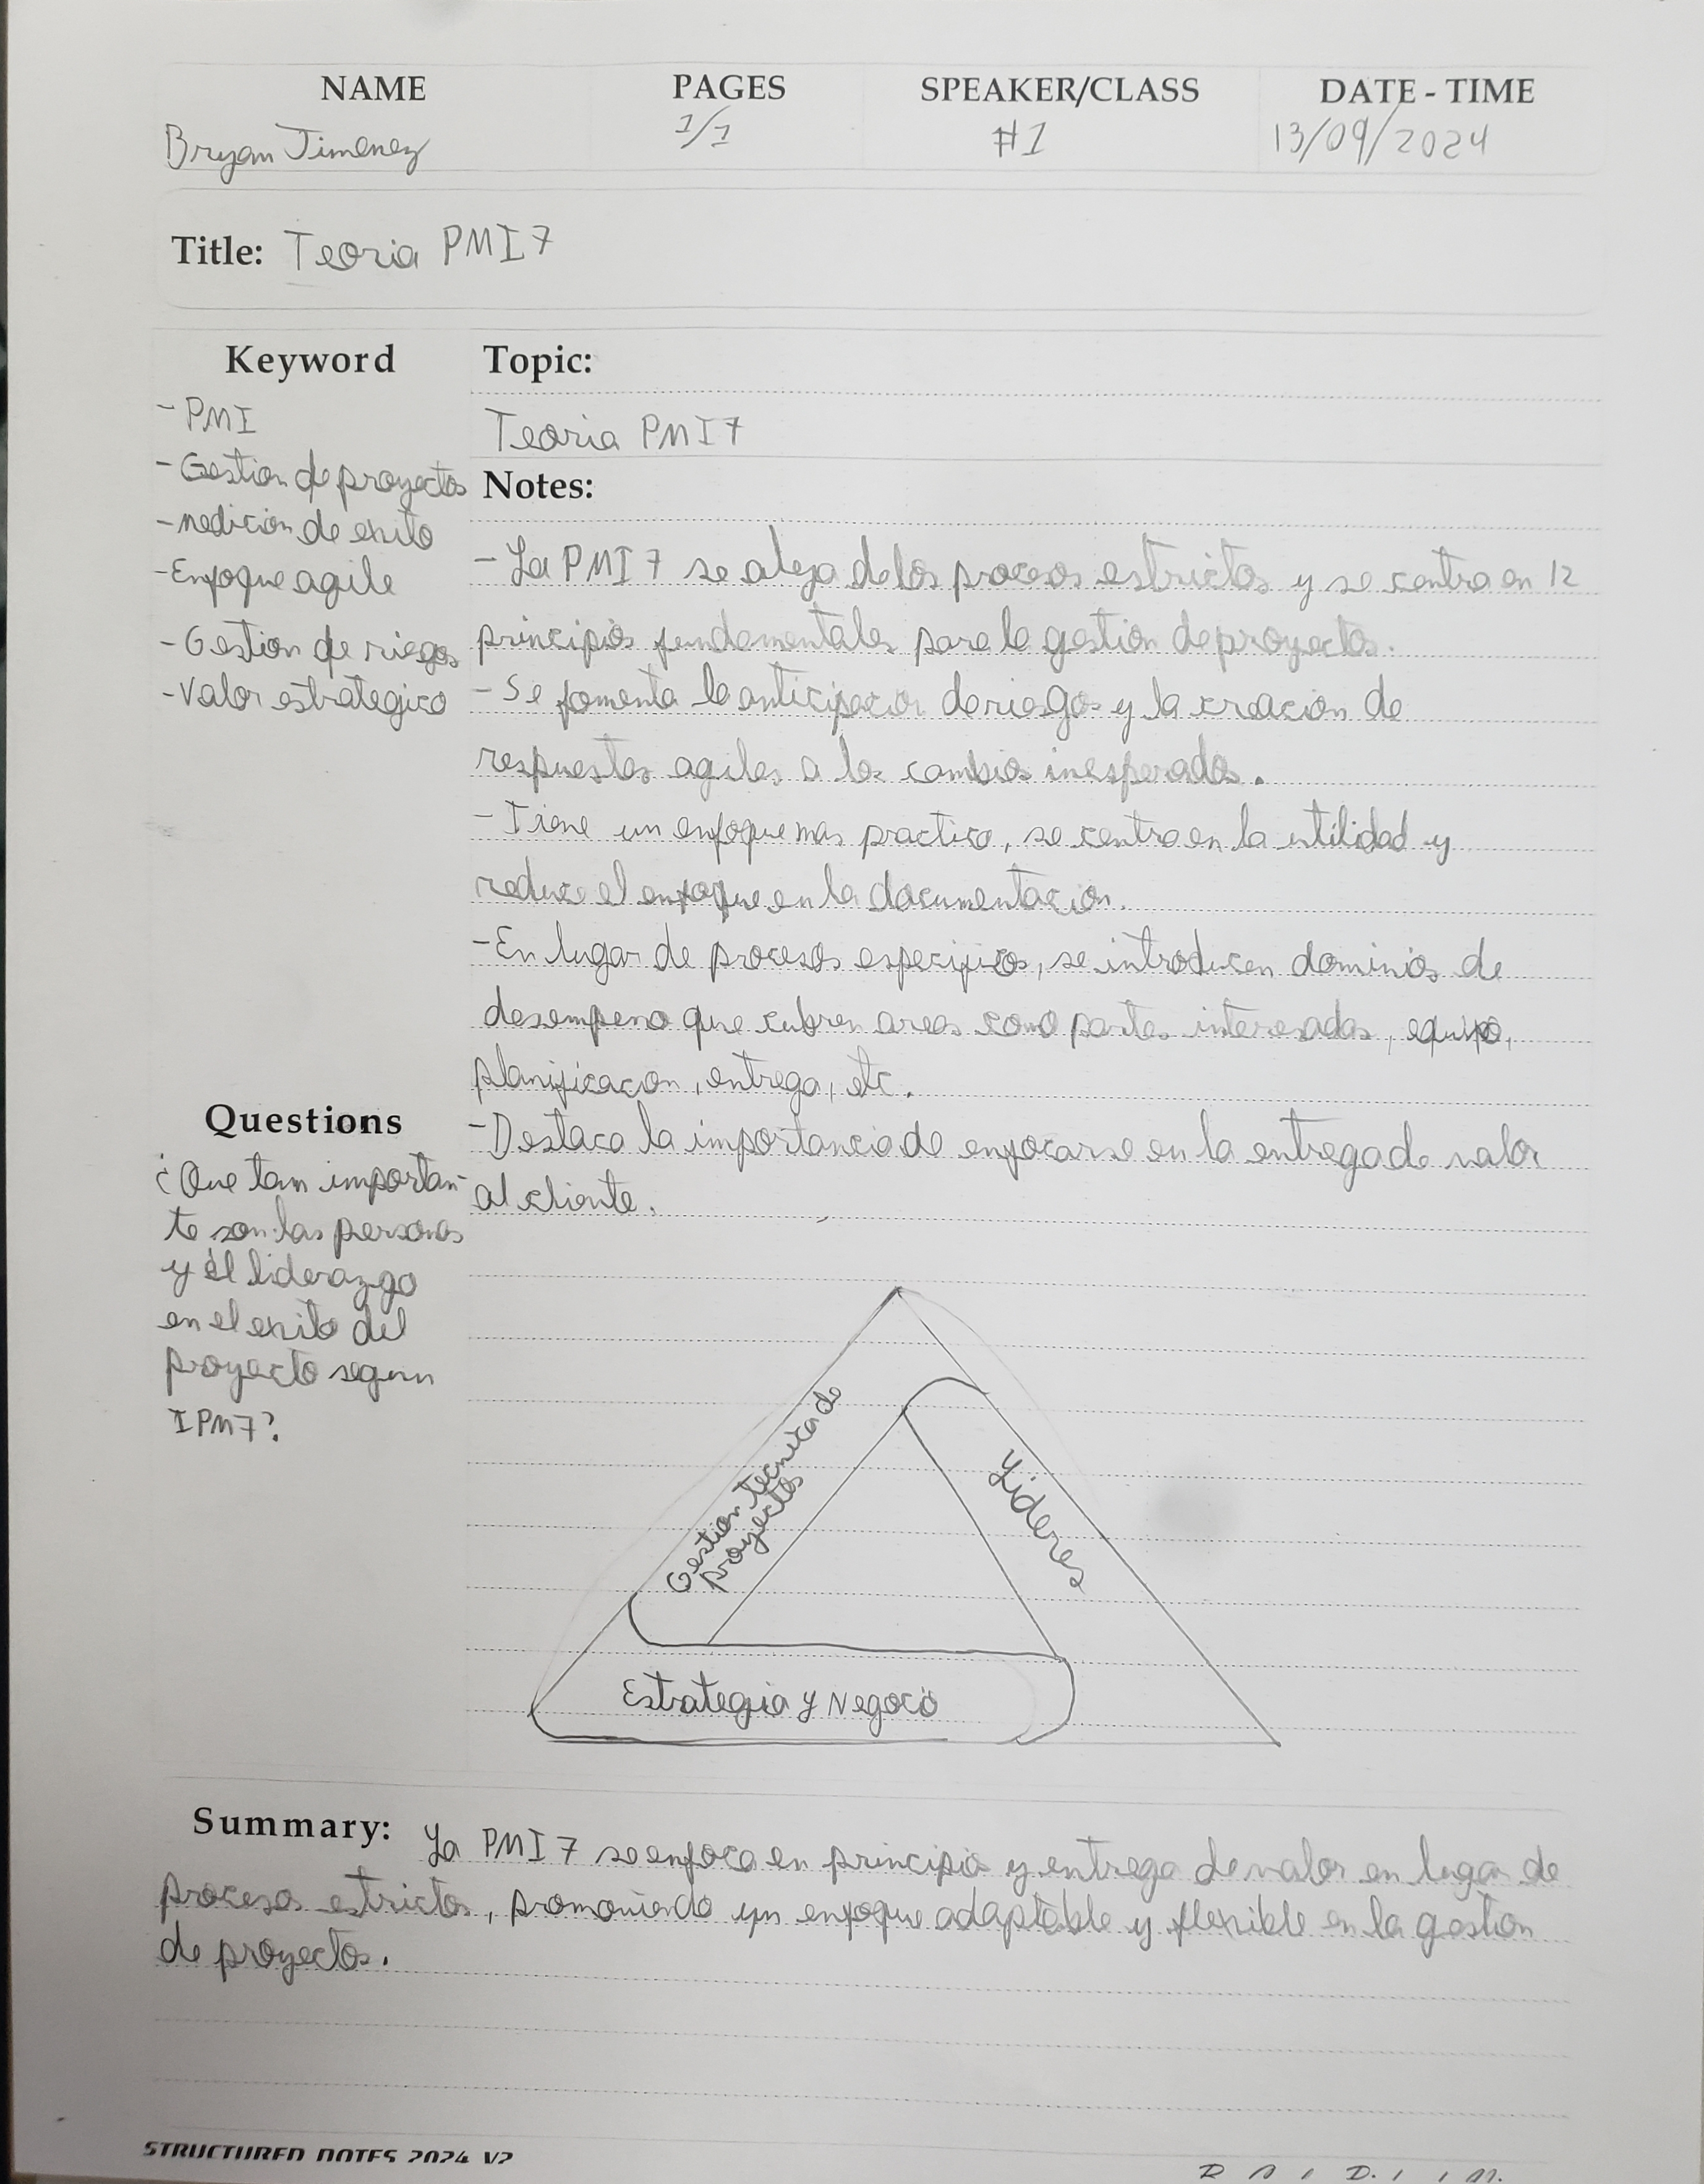 NAME PAGES SPEAKER/CLASS DATE - TIME
Bryan Jimenez 1/1 #1 13/09/2024
Title: Teoria PMI 7
Keyword
- PMI
- Gestion de proyectos
- medicion de exito
- Enfoque agile
- Gestion de riegos
- Valor estrategico
Topic:
Teoria PMI 7
Notes:
- La PMI 7 se aleja de los procesos estrictos y se centra en 12
principios fundamentales para la gestion de proyectos.
- Se fomenta la anticipacion de riesgos y la creacion de
respuestas agiles a los cambios inesperados.
- Tiene un enfoque mas practico, se centra en la utilidad y
reduce el enfoque en la documentacion.
- En lugar de procesos especificos, se introducen dominios de
desempeno que cubren areas como partes interesadas, equipo,
planificacion, entrega, etc.
- Destaca la importancia de enfocarse en la entrega de valor
al cliente.
Questions
¿Que tam importan-
te son las personas
y el liderazgo
en el exito del
proyecto segun
IPM7?
Gestion tecnica de
proyectos
Lideres
Estrategia y Negocio
Summary: La PMI 7 se enfoca en principio y entrega de valor en lugar de
procesos estrictos, promoviendo un enfoque adaptable y flexible en la gestion
de proyectos.
STRUCTURED NOTES 2024 V2